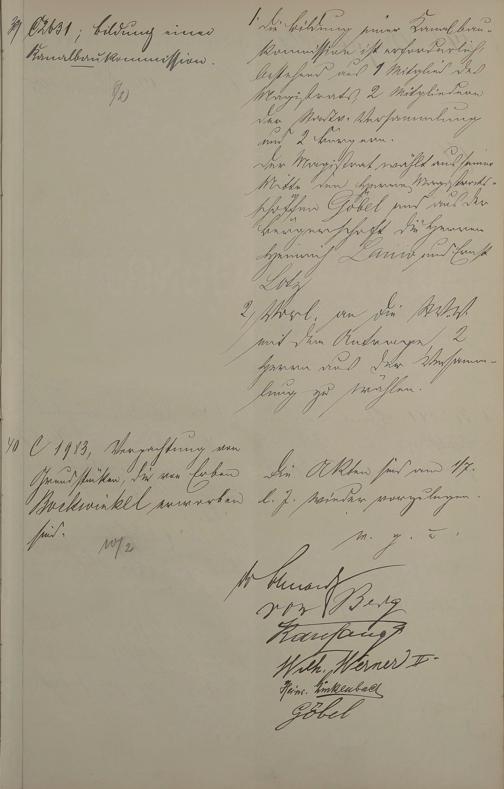 39 C 2631; Bildung einer
Kanalbaukommission.
9/2
1. Die Bildung einer Kanalbau-
kommission ist erforderlich
bestehend aus 1 Mitglied des
Magistrats, 2 Mitgliedern
der Stadtv. Versammlung
und 2 Bürgern.
Der Magistrat wählt aus seiner
Mitte den Herrn Magistrats-
schöffen Göbel und aus der
Bürgerschaft die Herren
Heinrich und Ernst
Lotz
2, Vorl. an die St.V.V.
mit dem Anfrage, 2
Herrn aus der Versamm-
lung zu wählen.
40 C 1983, Verpachtung von
Grundstücken, die von Erben
Bockwinkel erworben
sind.
10/2
Die Akten sind am 1/7.
l. J. wieder vorzulegen.
v. g. u.
von Berg
Kaufang
Wilh. Werner II.
Heinr. Winkenbach
Göbel